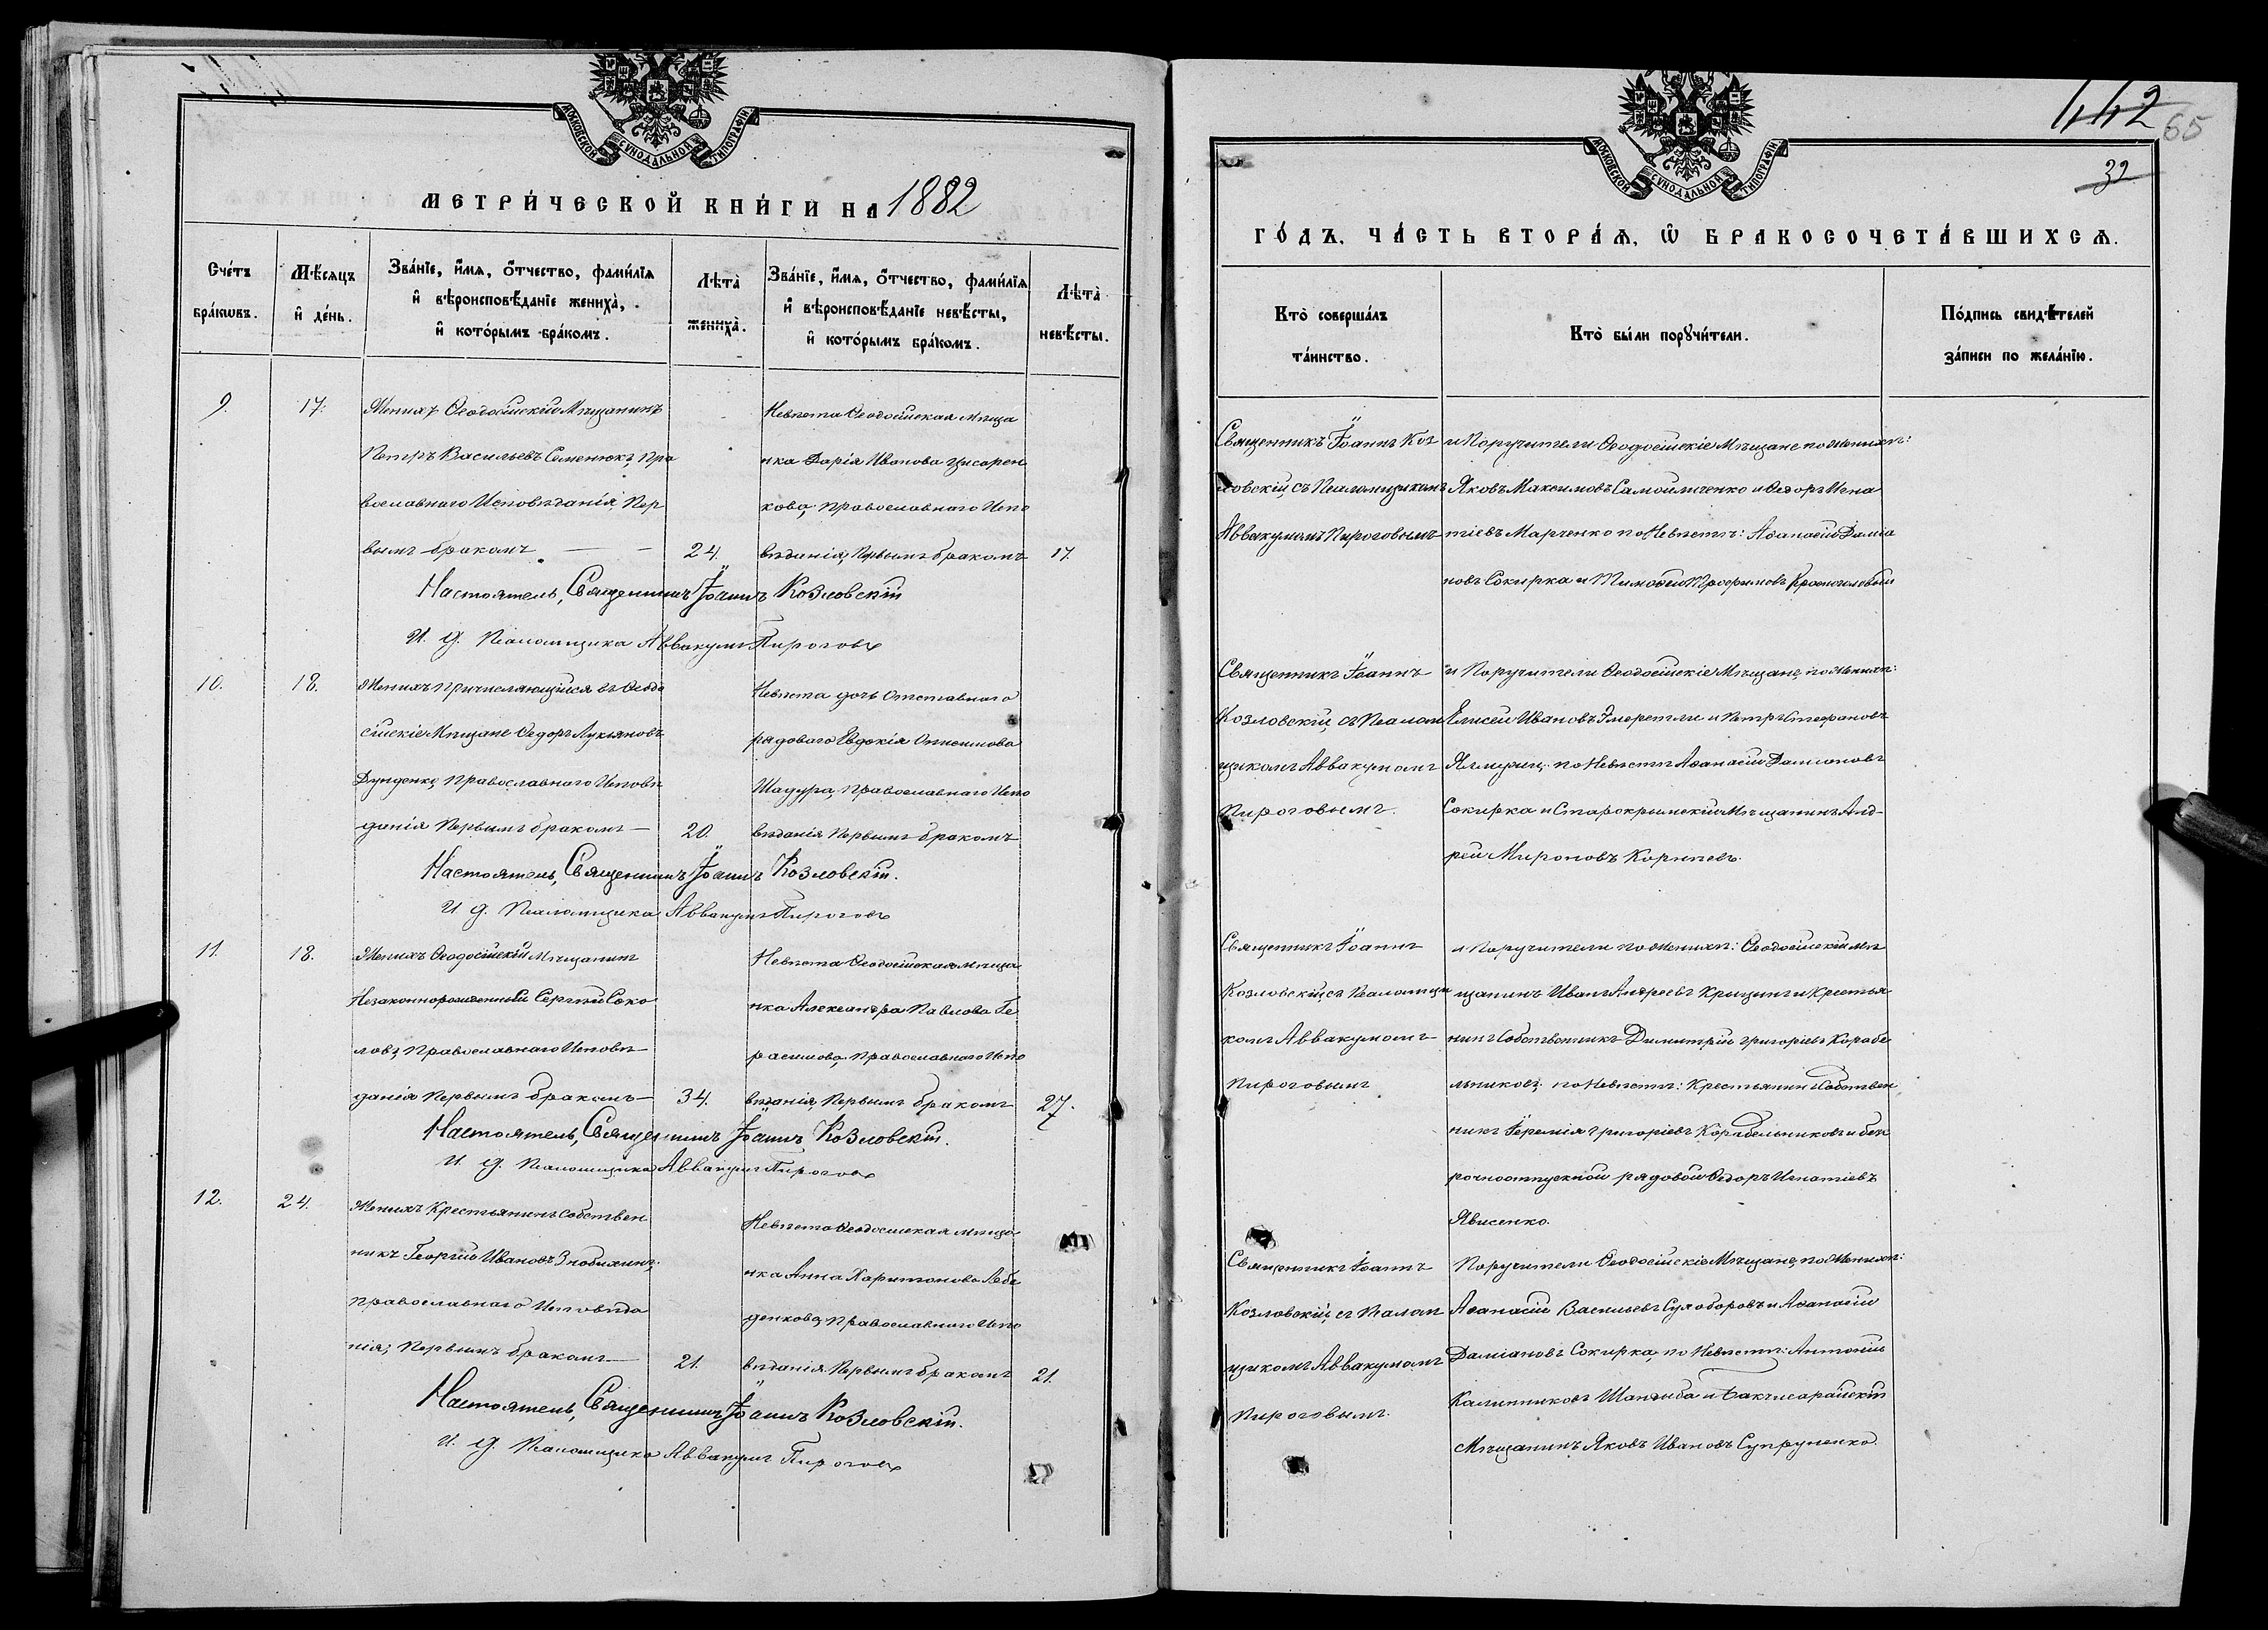 МОСКОВСКОЙ СѴНОДАЛЬНОЙ ТИПОГРАФІИ
МЕТРИ́ЧЕСКОЙ КНИ́ГИ НА 1882
Сче́тъ бра́кѡвъ.
Мѣ́сяцъ и҆ де́нь.
Зва́нїе, и҆́мя, ѻ҆́тчество, фами́лїя
и҆ вѣроисповѣ́данїе жениха̀,
и҆ кото́рымъ бра́комъ.
Лѣта̀ жениха̀.
Зва́нїе, и҆́мя, ѻ҆́тчество, фами́лїя
и҆ вѣроисповѣ́данїе невѣ́сты,
и҆ кото́рымъ бра́комъ.
Лѣта̀ невѣ́сты.
9.
17.
Женихъ Ѳеодосійскій Мѣщанинъ
Петръ Васильевъ Семенюкъ, Пра
вославнаго Исповѣданія, Пер
вымъ бракомъ
24.
Невѣста Ѳеодосійская мѣща
нка Дарія Иванова
кова, православнаго Испо
вѣданія, Первымъ бракомъ
17.
Настоятель, Священникъ Іоаннъ Козловскій
И. д. Псаломщика Аввакумъ Пироговъ
10.
18.
Женихъ причисляющійся въ Ѳеодо
сійскіе Мѣщане Ѳедоръ Лукьяновъ
православнаго Исповѣ
данія Первымъ бракомъ
20.
Невѣста дочь Отставнаго
рядоваго Евдокія Онисимова
Шадура, Православнаго Испо
вѣданія Первымъ бракомъ
Настоятель, Священникъ Іоаннъ Козловскій.
И. д. Псаломщика Аввакумъ Пироговъ
11.
18.
Женихъ Ѳеодосійскій Мѣщанинъ
Незаконнорожденный Сергій Соко
ловъ, Православнаго Исповѣ
данія Первымъ бракомъ
34.
Невѣста Ѳеодосійская мѣща
нка Александра Павлова Ге
расимова, православнаго Испо
вѣданія, Первымъ бракомъ
27.
Настоятель, Священникъ Іоаннъ Козловскій.
И. д. Псаломщика Аввакумъ Пироговъ
12.
24.
Женихъ Крестьянинъ Собствен
никъ Георгій Ивановъ Знобихинъ,
православнаго Исповѣда
нія, Первымъ бракомъ
21.
Невѣста Ѳеодосійская мѣща
нка Анна Харитонова Лебе
денкова, Православнаго Испо
вѣданія Первымъ бракомъ
21.
Настоятель, Священникъ Іоаннъ Козловскій.
И. д. Псаломщика Аввакумъ Пироговъ
МОСКОВСКОЙ СѴНОДАЛЬНОЙ ТИПОГРАФІИ
442
65
32
ГО́ДЪ, ЧА́СТЬ ВТОРА́Я, Ѡ҆ БРАКОСОЧЕТА́ВШИХСЯ.
Кто̀ соверша́лъ та́инство.
Кто̀ бы́ли порꙋчи́тели.
По́дпись свидѣ́телей за́писи по жела́нїю.
Священникъ Іоаннъ Коз
ловскій, съ Псаломщикомъ
Аввакумомъ Пироговымъ
Поручители Ѳеодосійскіе Мѣщане по Женихѣ:
Яковъ Максимовъ Самойличенко и Ѳедоръ Игна
тіевъ Марченко по Невѣстѣ: Аѳанасій Даміа
новъ Сокирка и Тимоѳей Трофимовъ Красноголовый
Священникъ Іоаннъ
Козловскій, съ Псалом
щикомъ Аввакумомъ
Пироговымъ.
Поручители Ѳеодосійскіе Мѣщане, по Женихѣ:
Елисей Ивановъ и Петръ Стефановъ
по Невѣстѣ Аѳанасій Даміановъ
Сокирка и Старокрымскій Мѣщанинъ Анд-
рей Мироновъ Корнѣевъ.
Священникъ Іоаннъ
Козловскій, съ Псаломщи
комъ Аввакумомъ
Пироговымъ
Поручители по Женихѣ: Ѳеодосійскій мѣ
щанинъ Иванъ Андреевъ Крицинъ и Крестья
нинъ Собственникъ Димитрій Григоріевъ Корабе
льниковъ. по Невѣстѣ: Крестьянинъ Собствен
никъ Іеремія Григоріевъ Корабельниковъ и без
рочноотпускной рядовой Ѳедоръ Игнатіевъ
Явисенко.
Священникъ Іоаннъ
Козловскій, съ Псалом
щикомъ Аввакумомъ
Пироговымъ.
Поручители Ѳеодосійскіе Мѣщане, по Женихѣ:
Аѳанасій Васильевъ Сухоборовъ и Аѳанасій
Даміановъ Сокирка, по Невѣстѣ: Антоній
Калинниковъ Шандыба и Бакчисарайскій
Мѣщанинъ Яковъ Ивановъ Супруненко.